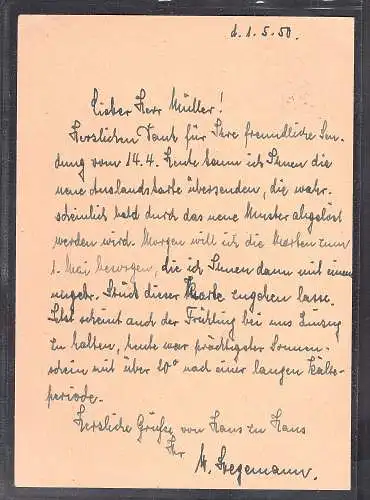 d. 1.5.50.
Lieber Herr Müller!
Herzlichen Dank für Ihre freundliche Sen-
dung vom 14.4. Heute kann ich Ihnen die
neue Auslandskarte übersenden, die wahr-
scheinlich bald durch das neue Muster abgelöst
werden wird. Morgen will ich die Marken zum
1. Mai besorgen, die ich Ihnen dann mit einem
ungebr. Stück dieser Karte zugehen lasse.
Jetzt scheint auch der Frühling bei uns Einzug
zu halten, heute war prächtigster Sonnen-
schein mit über 20° nach einer langen Kälte-
periode.
Herzliche Grüße von Haus zu Haus
Ihr
Stegemann.